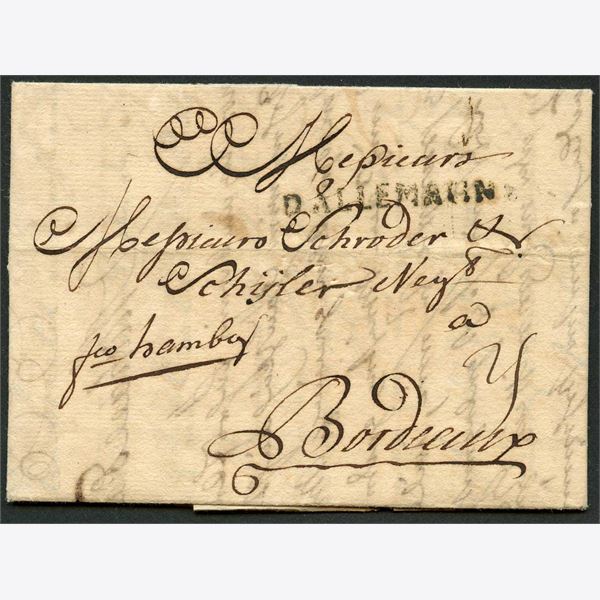 Messieurs
D ALLEMAGNE
Messieurs Schröder &
Schÿler Neg.ts
a
fco hamb.g
Bordeaux